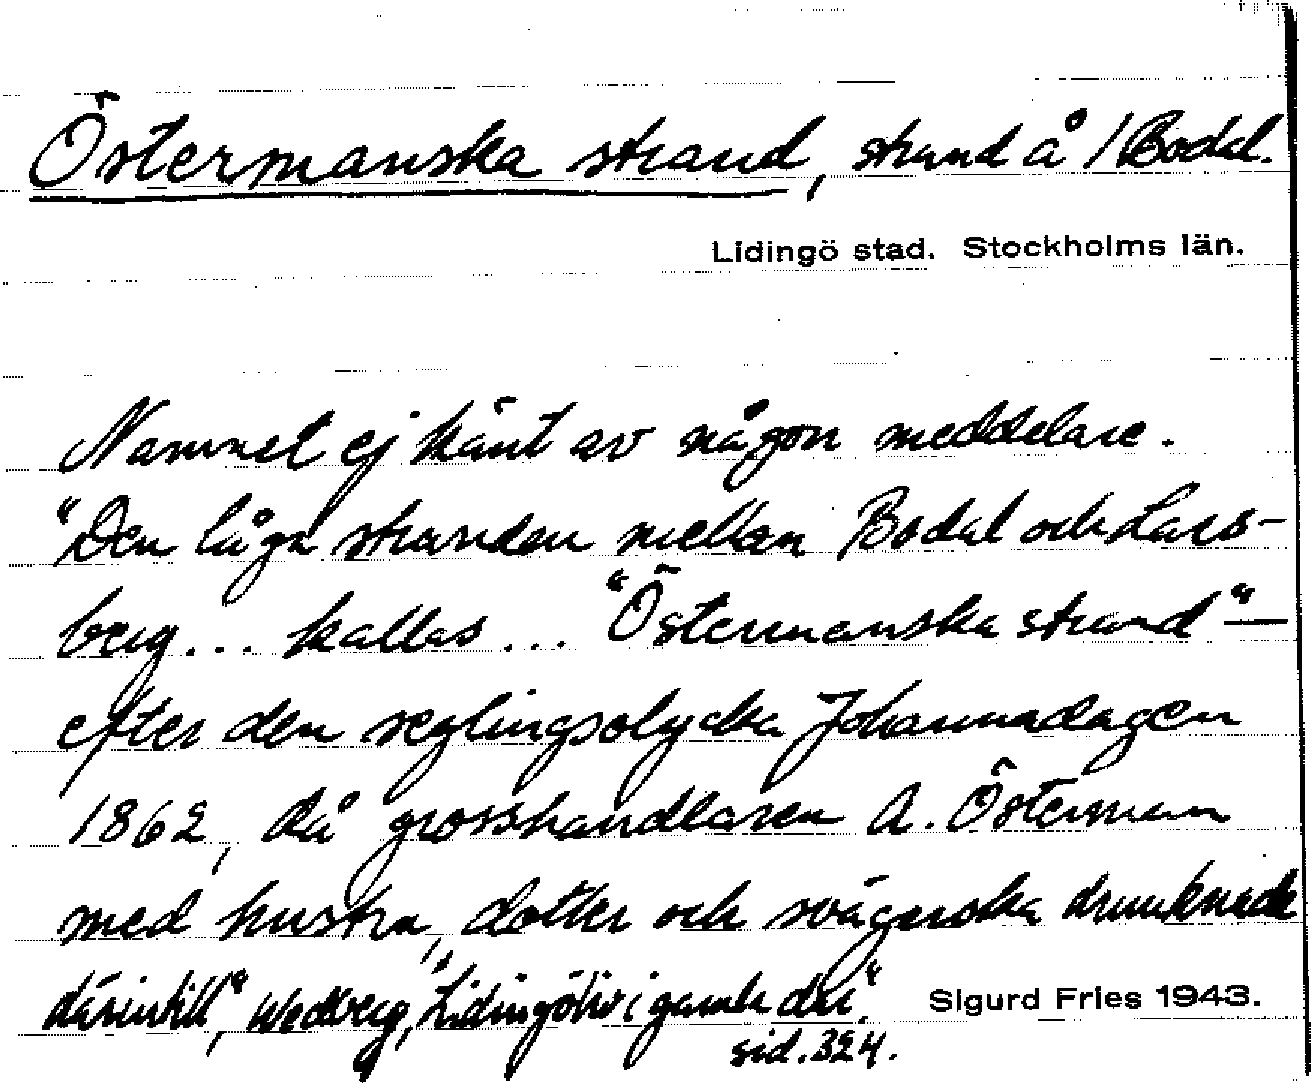 Östermanska strand, strand å 1 Bodal.
Lidingö stad. Stockholms län.
Namnet ej känt av någon meddelare.
"Den låga stranden mellan Bodal och Lars-
berg... kallas ... "Östermanska strand" —
efter den seglingsolycka Johannadagen
1862, då grosshandlaren A. Österman
med hustru, dotter och svägerska drunknade
därintill", Wedberg, "Lidingöliv i gamla dar".
Sigurd Fries 1943.
sid. 324.